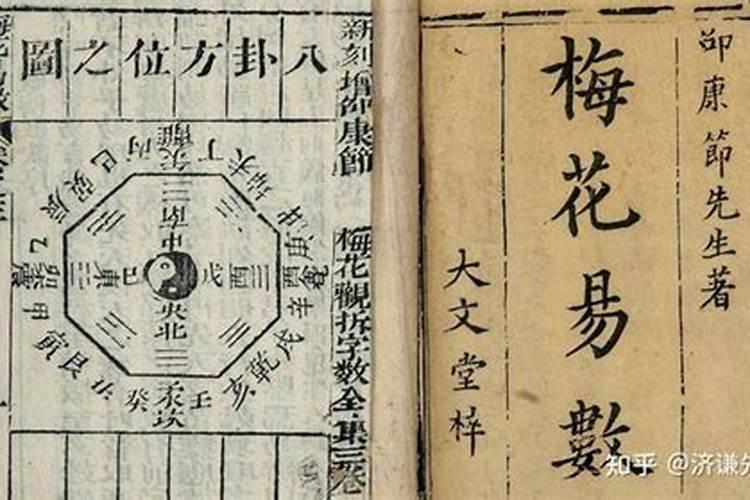 邵康節先生著
梅花易數
大文堂梓
新刻增邵康節 梅花觀拆字數全集三卷
八卦方位之圖
丙 離 丁
未 坤 申
庚 酉 辛
戌 乾 亥
壬 子 坎 癸
丑 艮 寅
甲 震 乙
辰 巽 巳
南
中央
北
東
西
戊
己
知乎 @济谦